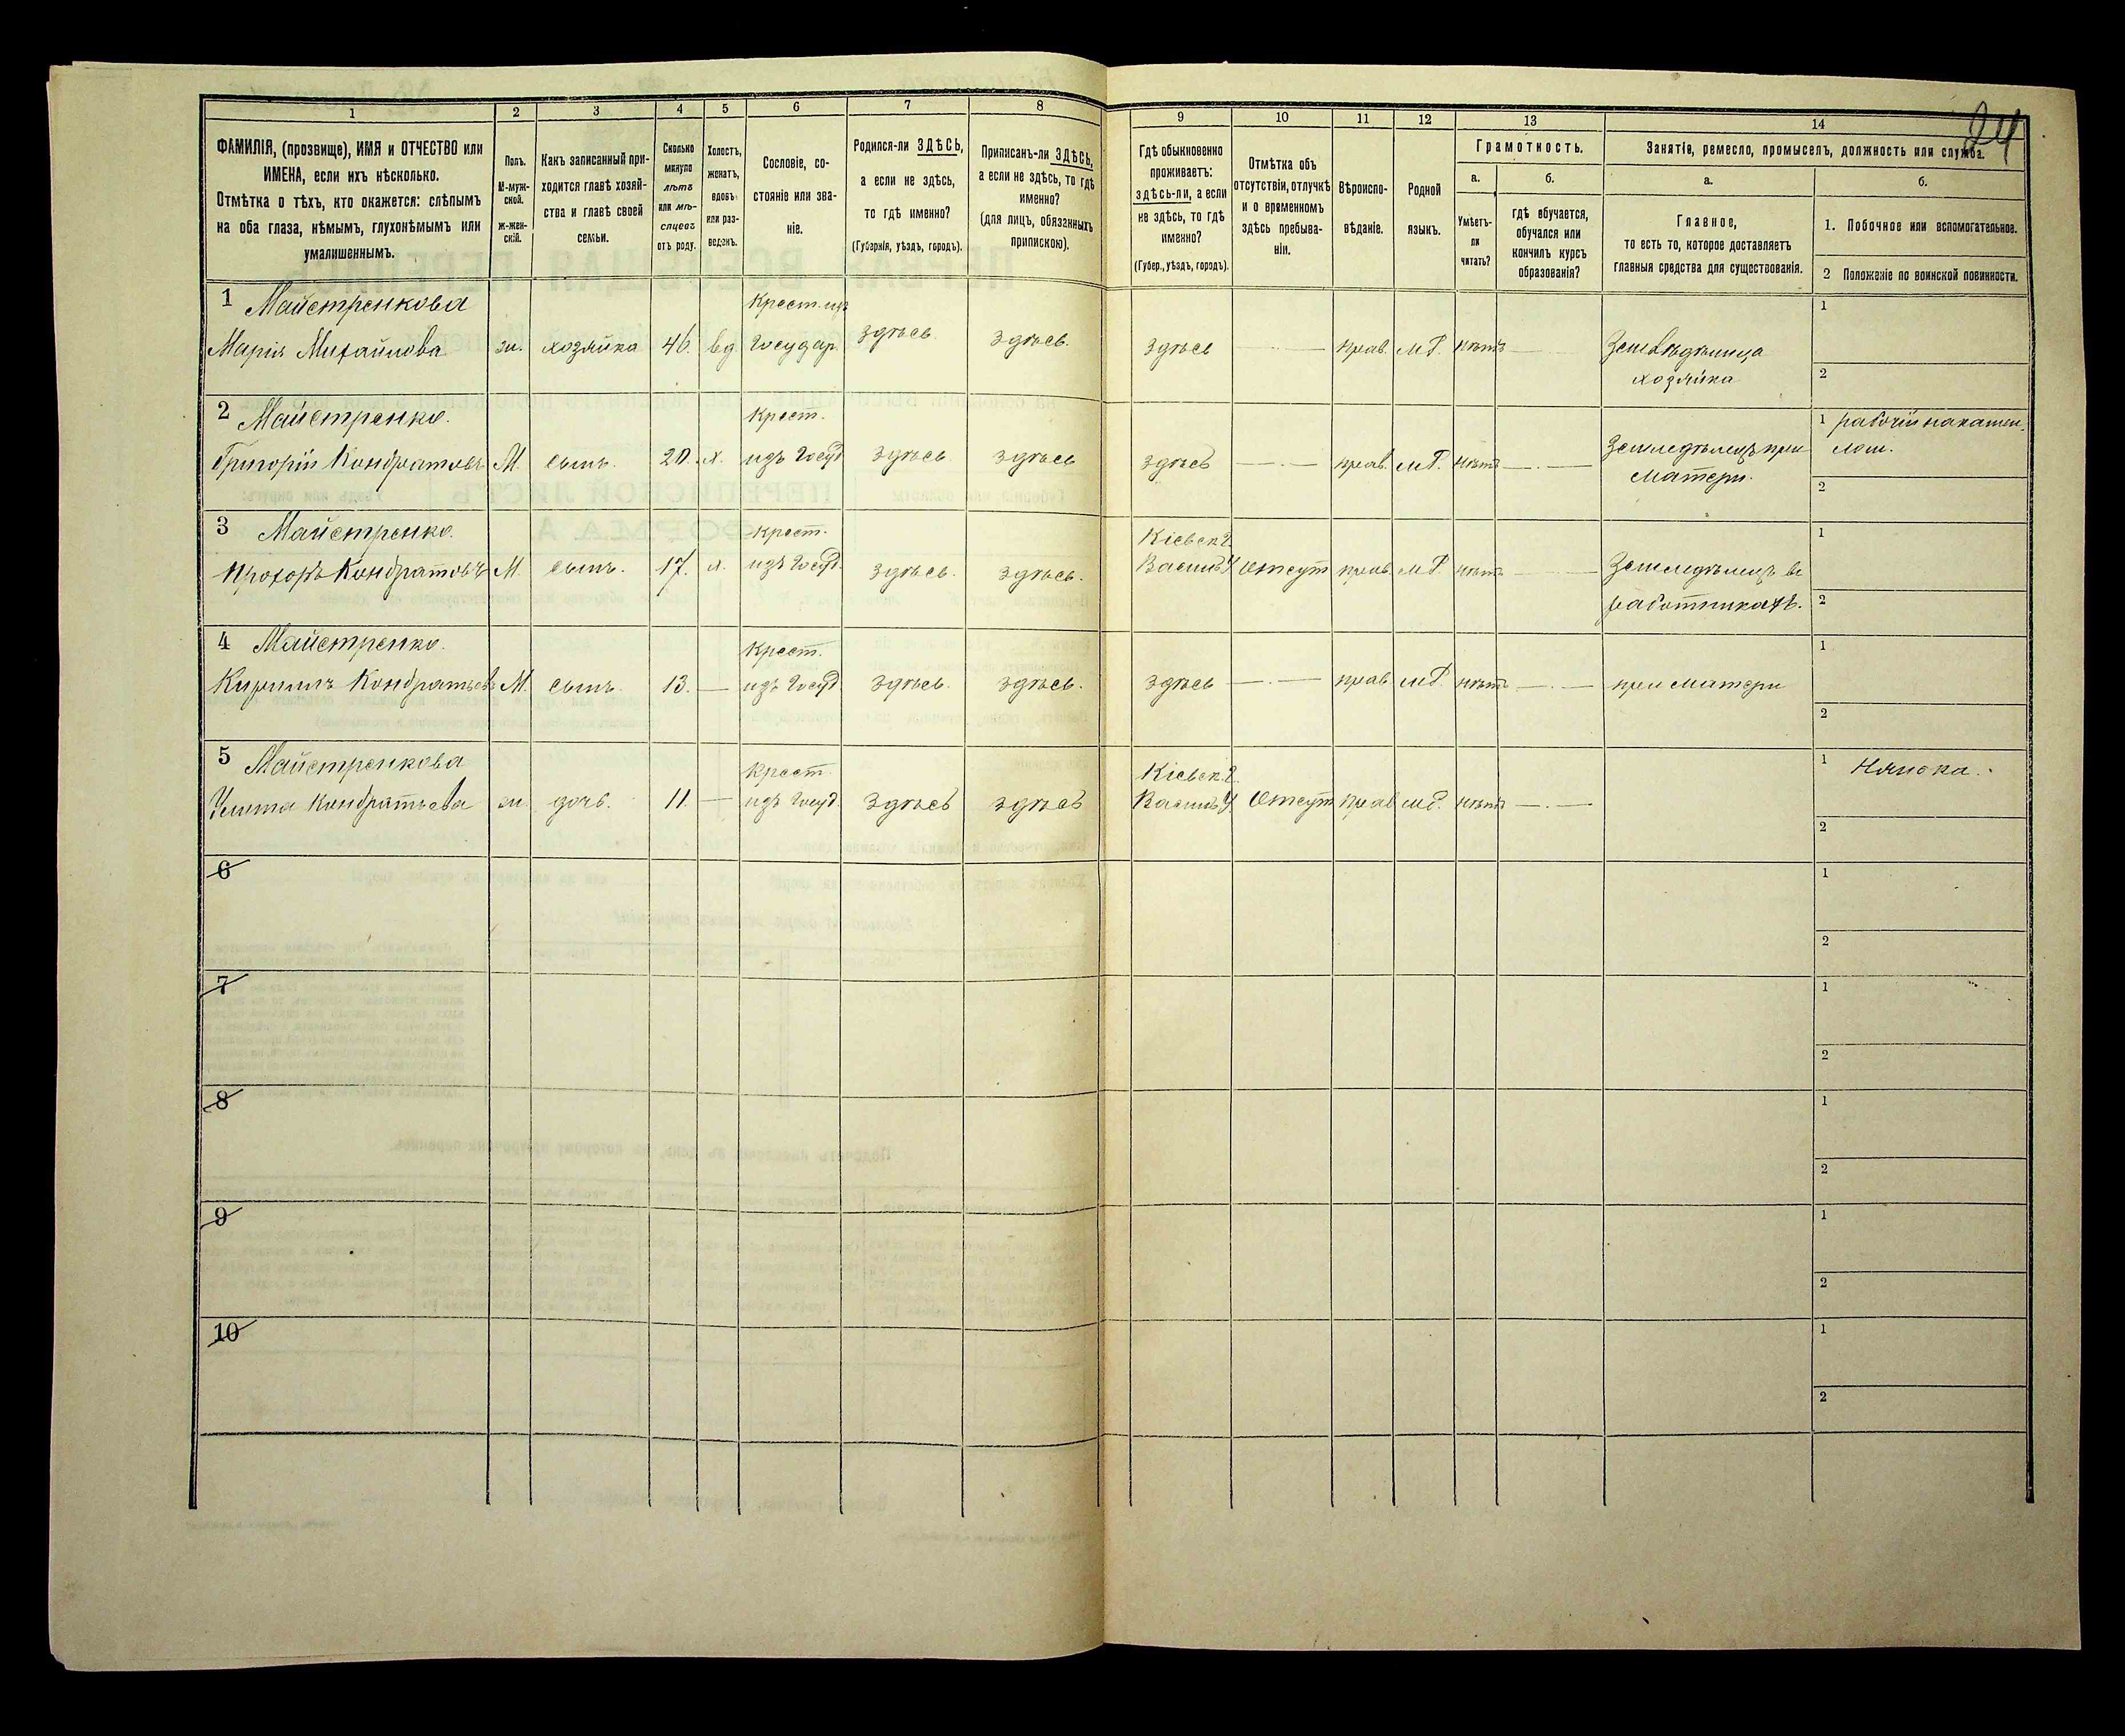 24
1 2 3 4 5 6 7 8 9 10 11 12 13 14
ФАМИЛІЯ, (прозвище), ИМЯ и ОТЧЕСТВО или
ИМЕНА, если ихъ нѣсколько.
Отмѣтка о тѣхъ, кто окажется: слѣпымъ
на оба глаза, нѣмымъ, глухонѣмымъ или
умалишеннымъ.
Полъ.
М-муж-
ской.
ж-жен-
скій.
Какъ записанный при-
ходится главѣ хозяй-
ства и главѣ своей
семьи.
Сколько
минуло
лѣтъ
или мѣ-
сяцевъ
отъ роду.
Холостъ,
женатъ,
вдовъ
или раз-
веденъ.
Сословіе, со-
стояніе или зва-
ніе.
Родился-ли ЗДѢСЬ,
а если не здѣсь,
то гдѣ именно?
(Губернія, уѣздъ, городъ).
Приписанъ-ли ЗДѢСЬ,
а если не здѣсь, то гдѣ
именно?
(для лицъ, обязанныхъ
припискою).
Гдѣ обыкновенно
проживаетъ:
здѣсь-ли, а если
не здѣсь, то гдѣ
именно?
(Губер., уѣздъ, городъ).
Отмѣтка объ
отсутствіи, отлучкѣ
и о временномъ
здѣсь пребыва-
ніи.
Вѣроиспо-
вѣданіе.
Родной
языкъ.
Грамотность.
а.
Умѣетъ-
ли
читать?
б.
гдѣ обучается,
обучался или
кончилъ курсъ
образованія?
Занятіе, ремесло, промыселъ, должность или служба.
а.
Главное,
то есть то, которое доставляетъ
главныя средства для существованія.
б.
1. Побочное или вспомогательное.
2 Положеніе по воинской повинности.
1 Майстренкова Крест. изъ 1
Марія Михайлова ж. хозяйка 46. вд Государ. здѣсь здѣсь. здѣсь — прав. мР. нѣтъ — Землѣдѣлица
хозяйка 2
2 Майстренко. Крест. 1 рабочій на камен.
Григорій Кондратовъ М. сынъ. 20. х. изъ Госуд здѣсь здѣсь здѣсь —.— прав. мР. нѣтъ —.— Земледѣлецъ при лом.
матери. 2
3 Майстренко. крест. Кіевск. г. 1
Прохоръ Кондратовъ М. сынъ. 17. х. изъ Госуд. здѣсь. здѣсь. Василь У Отсут прав. мР. нѣтъ — Земледѣлецъ въ
работникахъ. 2
4 Майстренко. Крест. 1
Кириллъ Кондратьевъ М. сынъ. 13. — изъ Госуд. здѣсь. здѣсь. здѣсь —.— прав мР. нѣтъ —.— при матери
2
5 Майстренкова Крест. Кіевск. г. 1 Нянька.
Улита Кондратьева ж. дочь. 11. — изъ Госуд. здѣсь здѣсь Василь У. Отсут прав мР. нѣтъ —.—
2
6 1
2
7 1
2
8 1
2
9 1
2
10 1
2